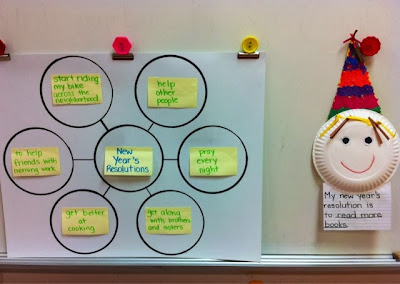 start riding
my bike
across the
neighborhood
help
other
people
to help
friends with
morning work
New
Year's
Resolutions
pray
every
night
get better
at
cooking
get along
with brothers
and sisters
My new year's
resolution is
to read more
books.